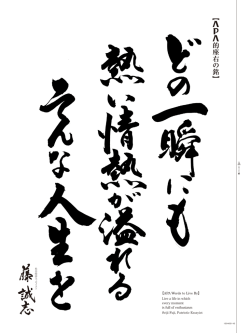 【APA的座右の銘】
どの一瞬にも
熱い情熱が溢れる
そんな人生を
藤 誠志
【APA Words to Live By】
Live a life in which
every moment
is full of enthusiasm
Seiji Fuji, Eccentric Essayist